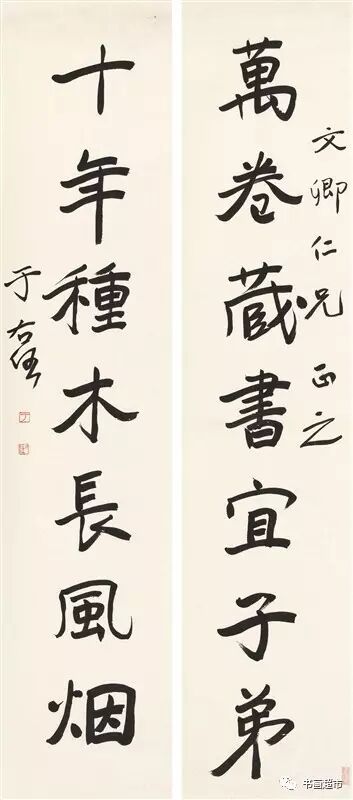 文卿仁兄正之
萬卷蔵書宜子弟
十年種木長風烟
于右任
书画超市